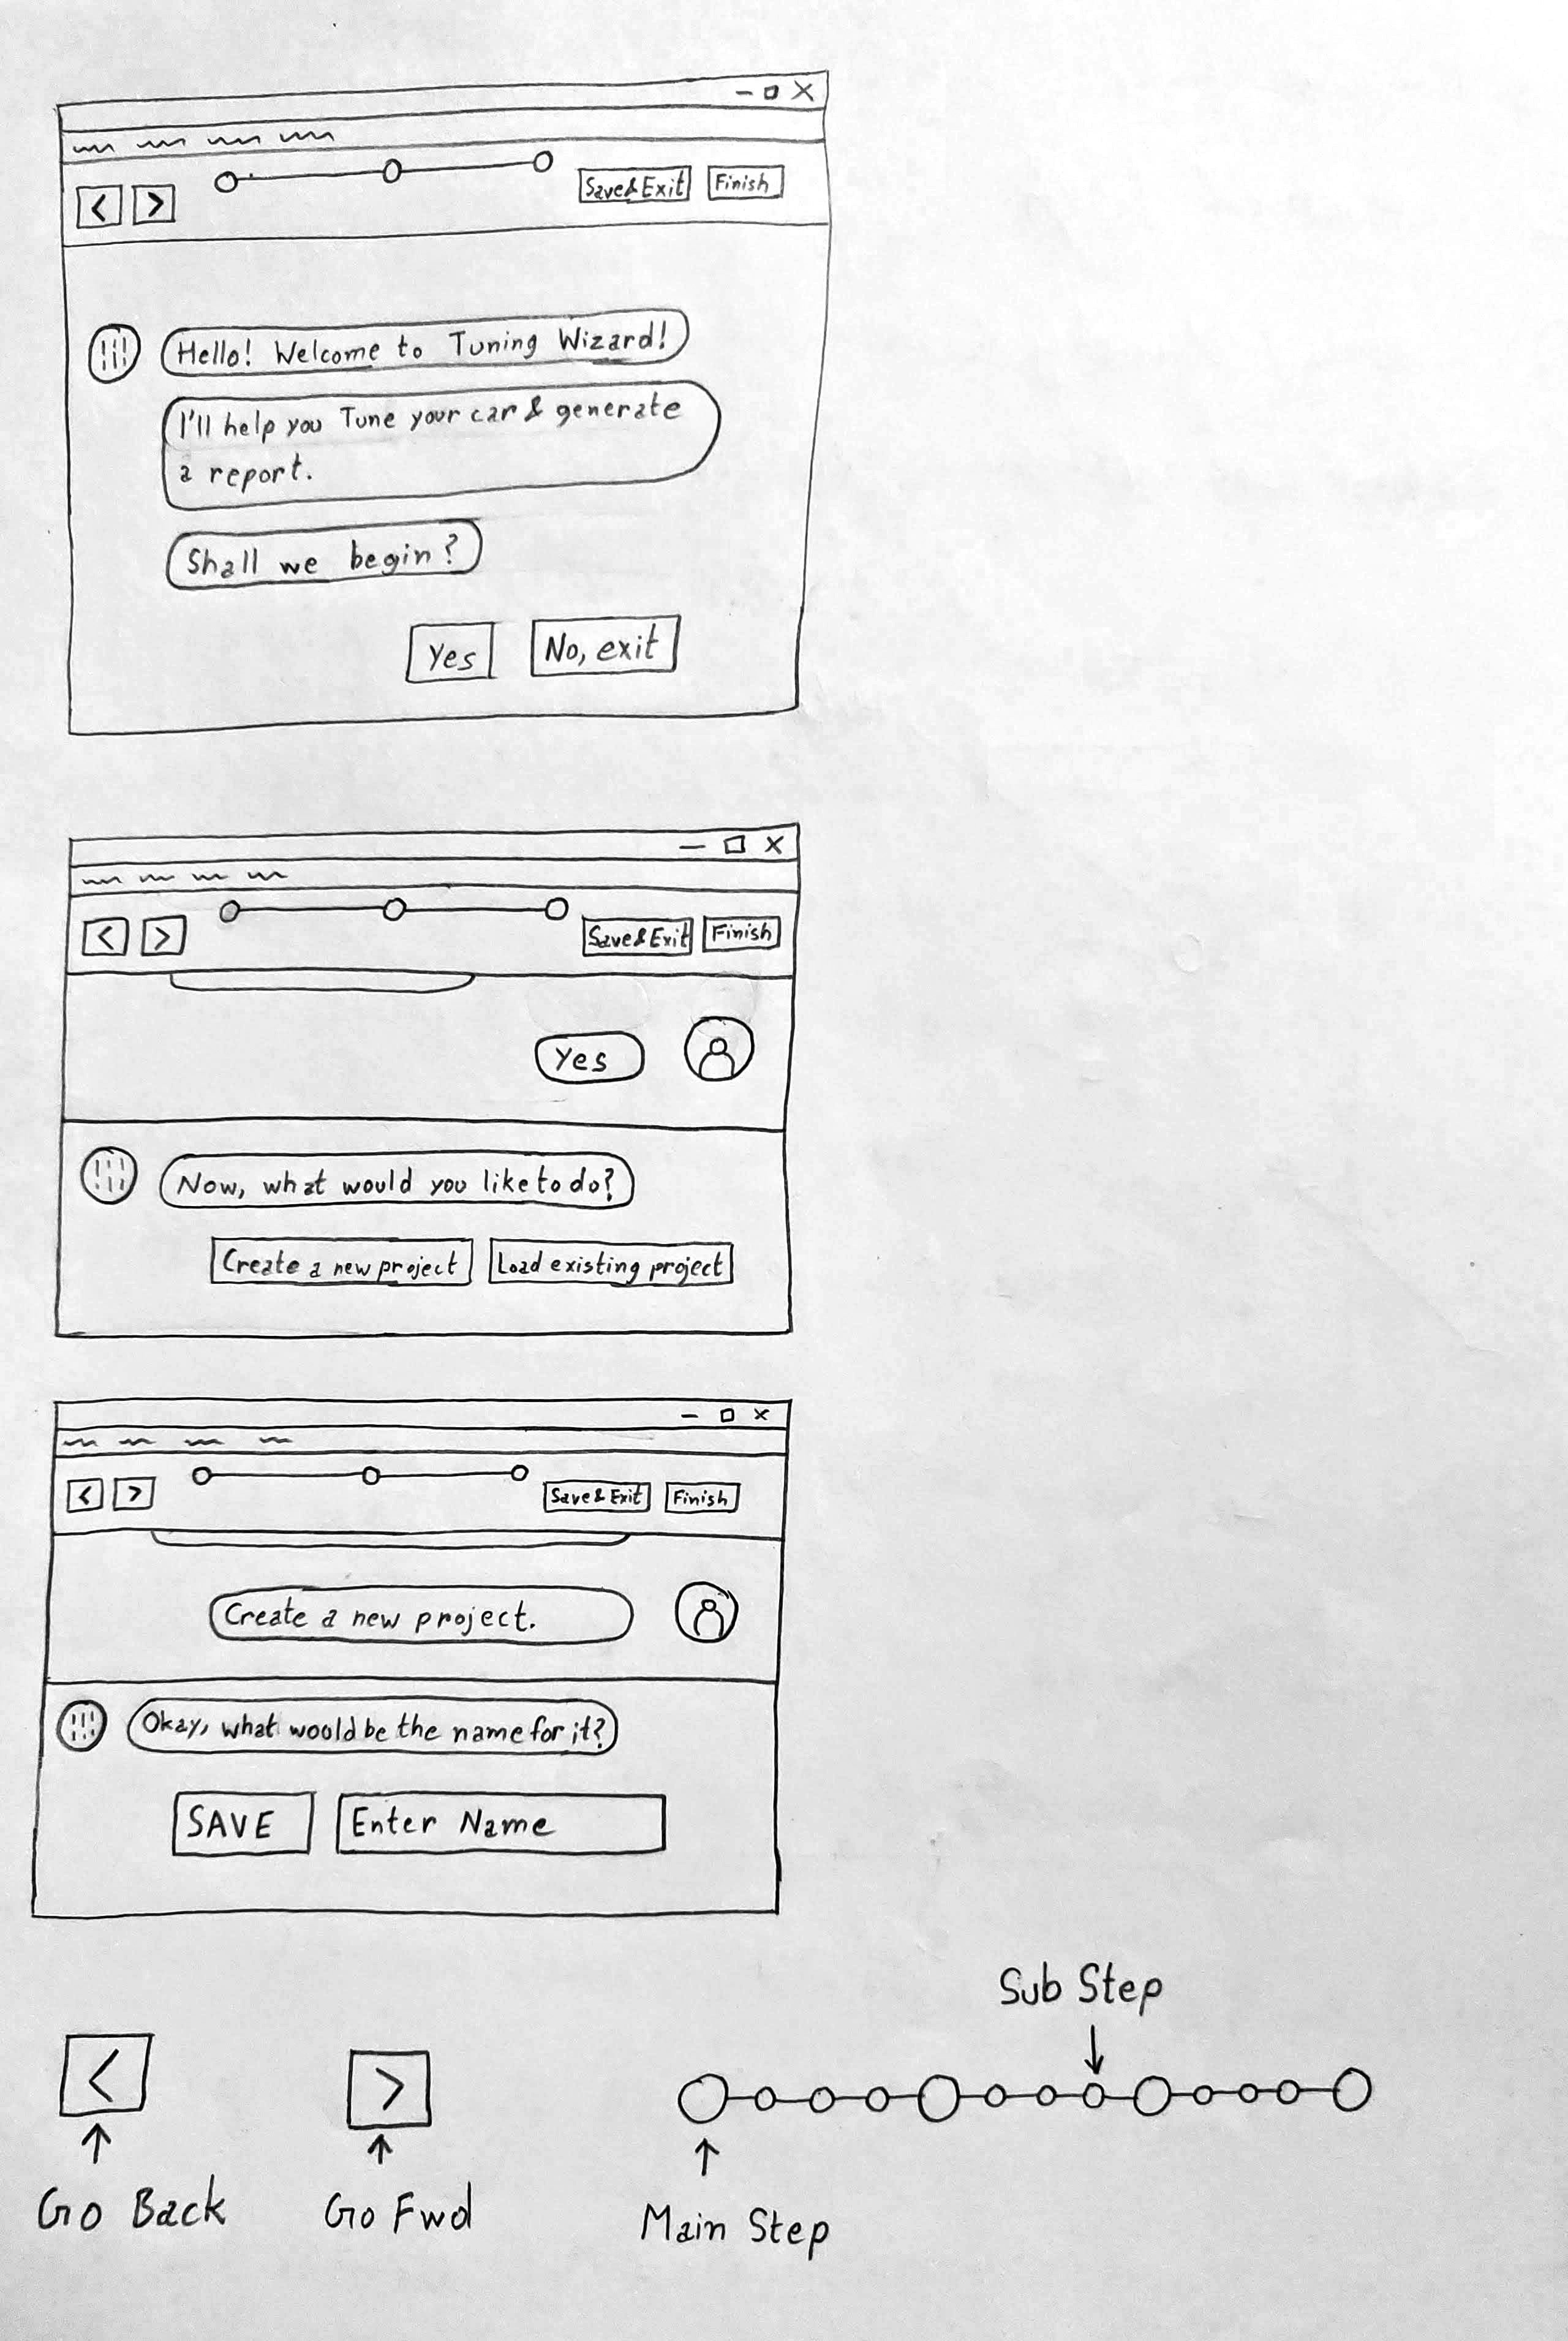 Save&Exit Finish
Hello! Welcome to Tuning Wizard!
I'll help you Tune your car & generate
a report.
Shall we begin?
Yes No, exit
Save&Exit Finish
Yes
Now, what would you like to do?
Create a new project Load existing project
Save&Exit Finish
Create a new project.
Okay, what would be the name for it?
SAVE Enter Name
Sub Step
Go Back Go Fwd Main Step